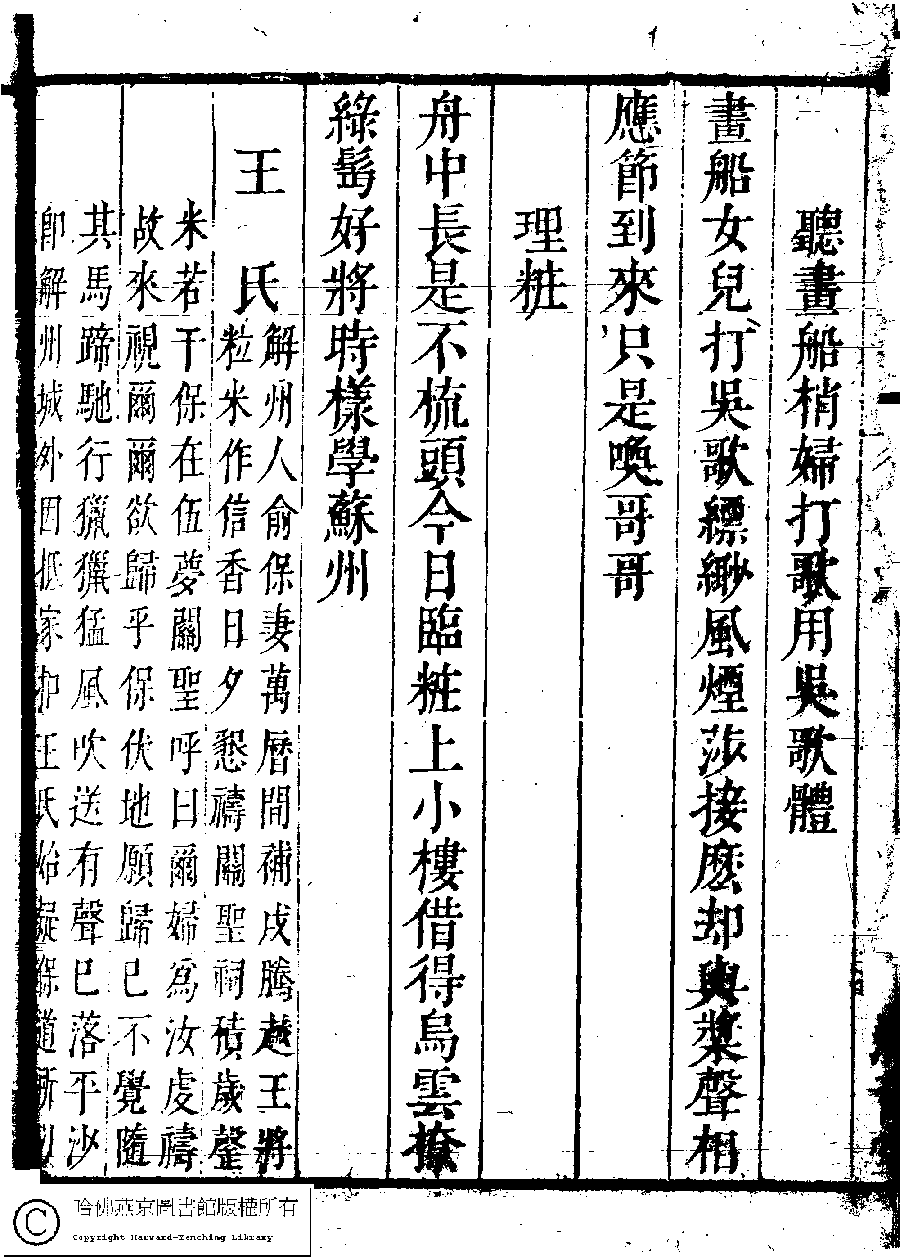 聽畫船梢婦打歌用吳歌體
畫船女兒打吳歌縹緲風煙莎接麽却與槳聲相
應節到來只是喚哥哥
理粧
舟中長是不梳頭今日臨粧上小樓借得烏雲撩
綠髩好將時樣學蘇州
王氏
解州人俞保妻萬曆間補戍騰越王將
粒米作信香日夕懇禱關聖祠積歲罄
米若干保在伍夢關聖呼曰爾婦爲汝虔禱
故來視爾爾欲歸乎保伏地願歸已不覺隨
其馬蹄馳行獵獵猛風吹送有聲已落平沙
卽解州城外因抵家扣王氏始疑保道所以
哈佛燕京圖書館版權所有
Copyright Harvard-Yenching Library